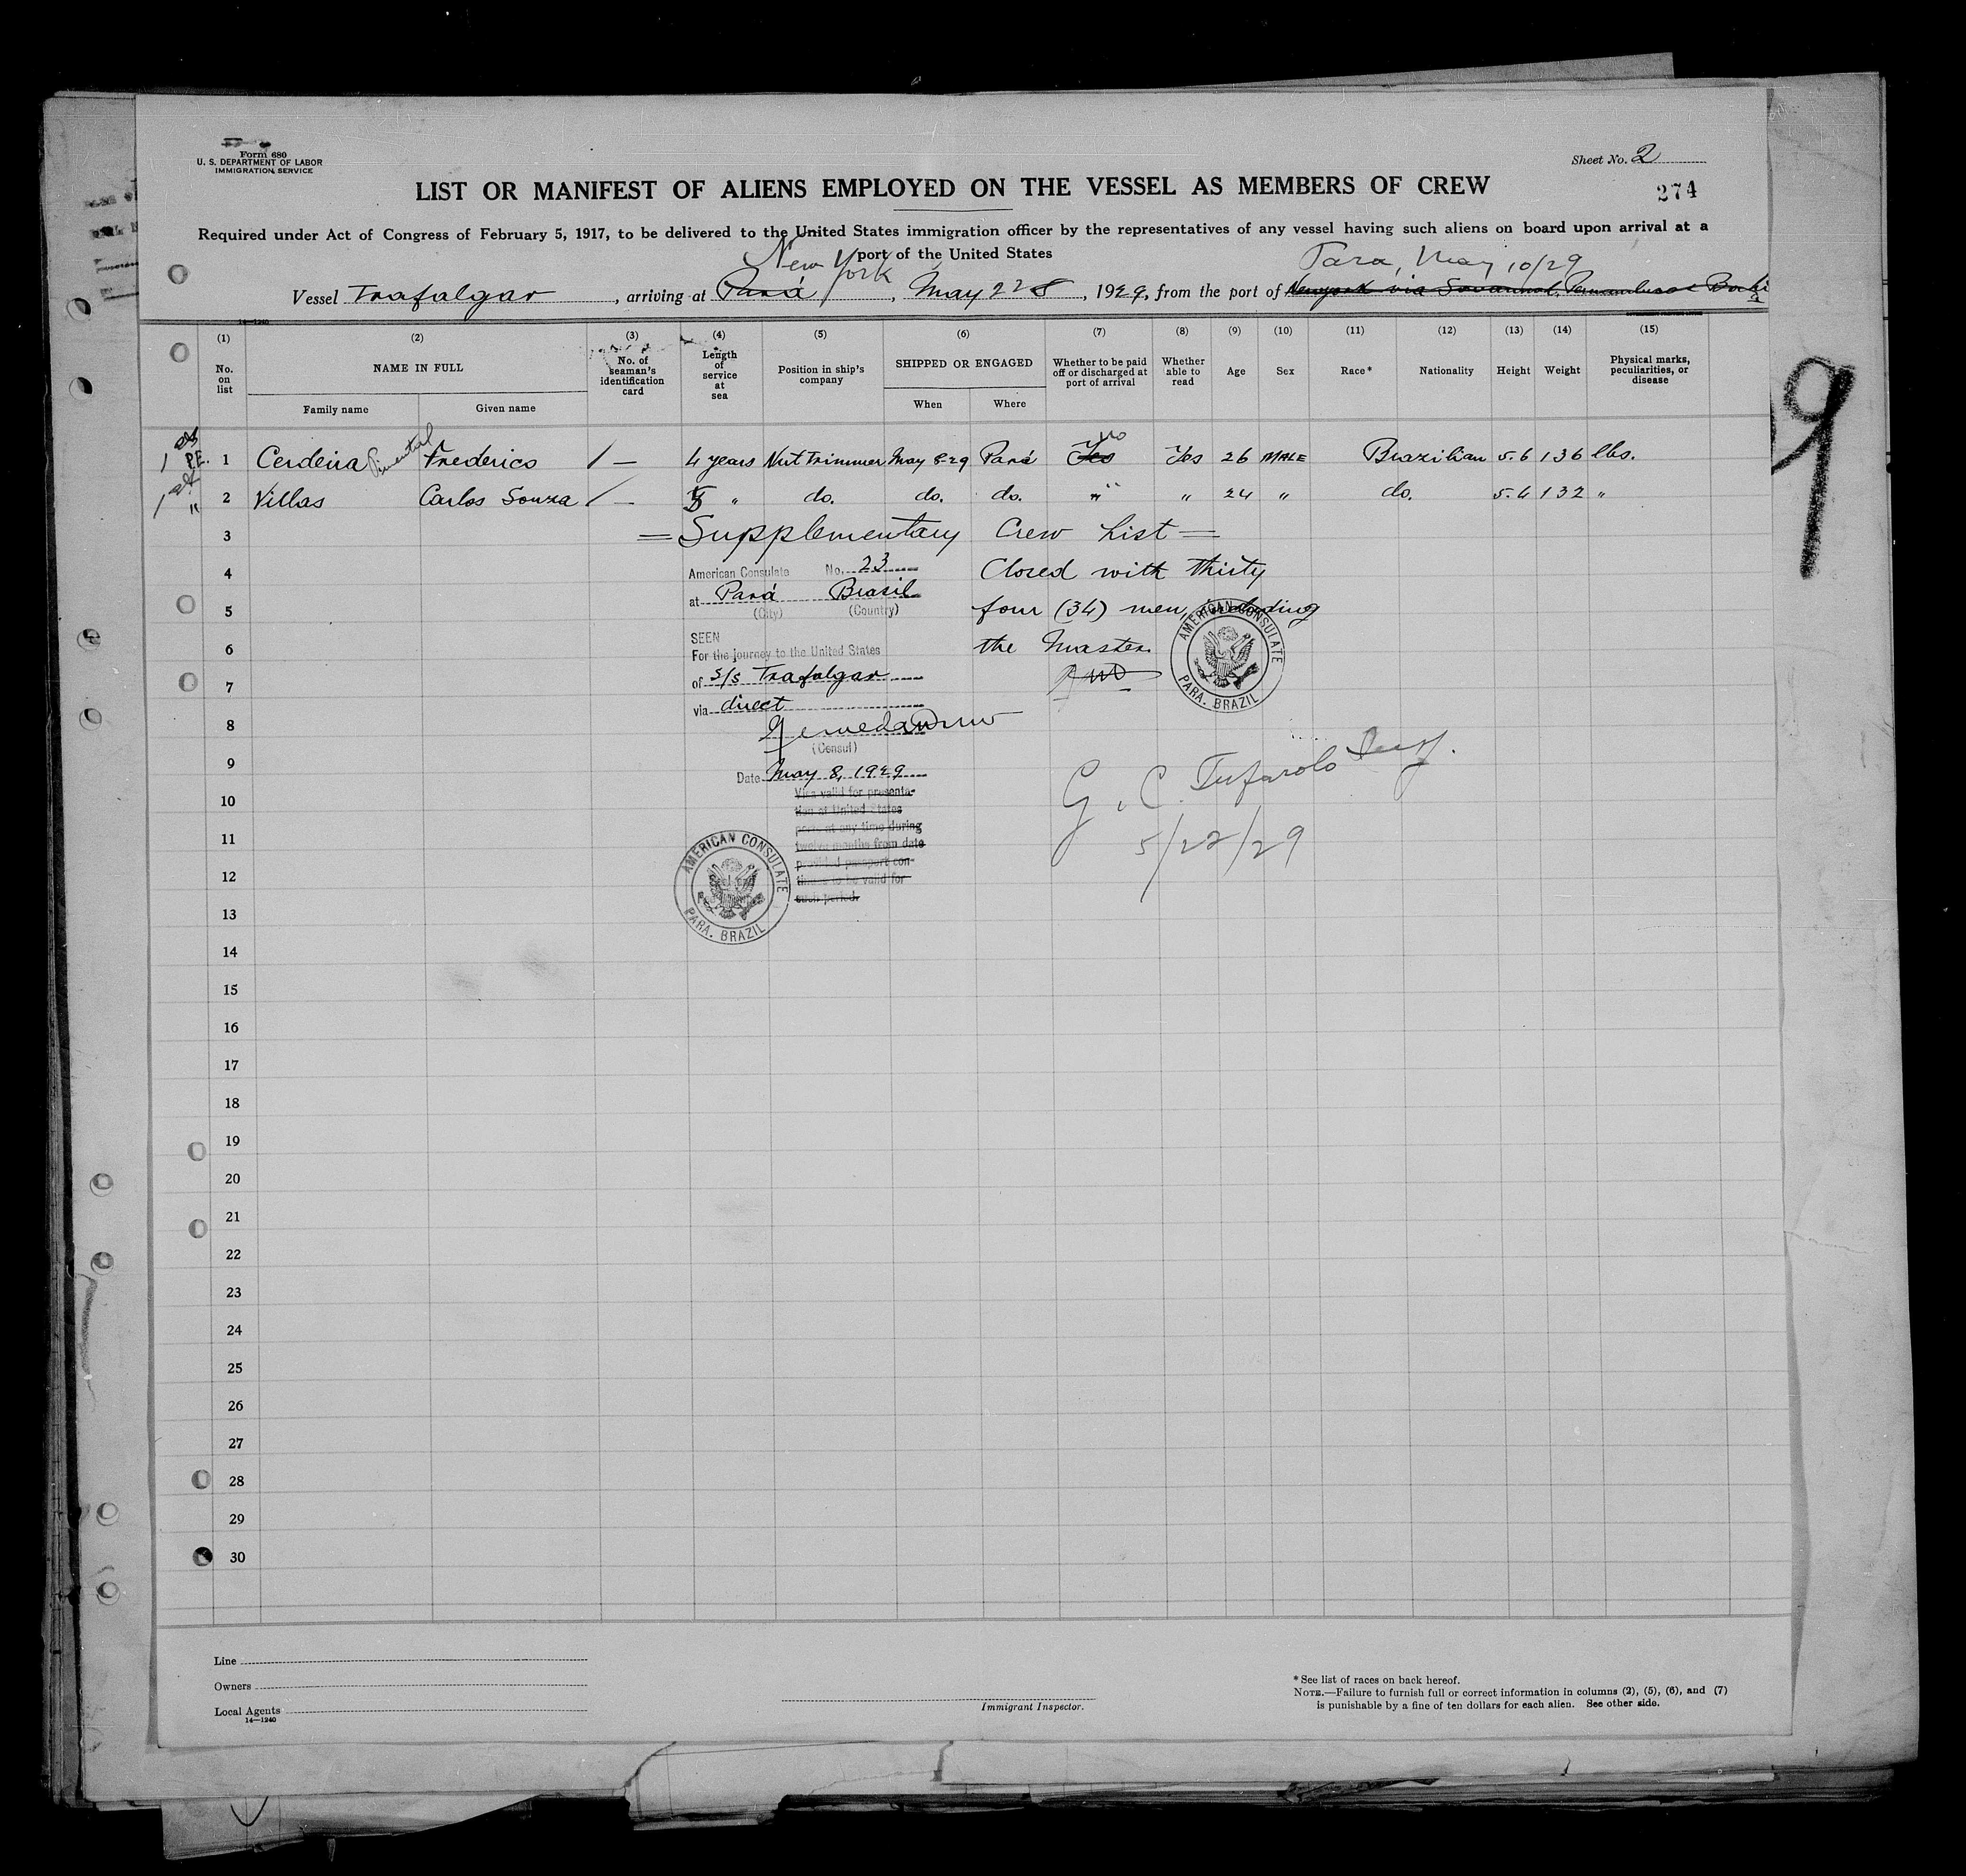 Form 680
U. S. DEPARTMENT OF LABOR
IMMIGRATION SERVICE
Sheet No. 2
274
LIST OR MANIFEST OF ALIENS EMPLOYED ON THE VESSEL AS MEMBERS OF CREW
Required under Act of Congress of February 5, 1917, to be delivered to the United States immigration officer by the representatives of any vessel having such aliens on board upon arrival at a
port of the United States
New York Para, May 10/29
Vessel Trafalgar, arriving at Pará, May 22, 1929, from the port of Newyork via Savannah, Pernambuco
14—1240
(1) (2) (3) (4) (5) (6) (7) (8) (9) (10) (11) (12) (13) (14) (15)
No. on list NAME IN FULL No. of seaman's identification card Length of service at sea Position in ship's company SHIPPED OR ENGAGED Whether to be paid off or discharged at port of arrival Whether able to read Age Sex Race* Nationality Height Weight Physical marks, peculiarities, or disease
Family name Given name When Where
1 PE. 1 Cerdeira Pimental Frederico / — 4 years Nut Trimmer May 8-29 Pará Yes no Yes 26 MALE Brazilian 5.6 136 lbs.
1 " 2 Villas Carlos Souza / — 5 " do. do. do. " " 24 " do. 5.6 132 "
3 = Supplementary Crew List =
4 American Consulate No. 23 Closed with thirty
at Pará Brasil
5 (City) (Country) four (34) men, including
SEEN
6 For the journey to the United States the Master
7 of S/S Trafalgar
via direct
8
(Consul)
9 Date May 8, 1929
Visa valid for presenta-
10 tion at United States
ports at any time during
11 twelve months from date
provided passport con-
12 tinues to be valid for
such period.
AMERICAN CONSULATE
PARA. BRAZIL
AMERICAN CONSULATE
PARA. BRAZIL
G. C. Tufarolo Insp.
5/22/29
9
13
14
15
16
17
18
19
20
21
22
23
24
25
26
27
28
29
30
Line
Owners
Local Agents
14—1240
Immigrant Inspector.
* See list of races on back hereof.
NOTE.—Failure to furnish full or correct information in columns (2), (5), (6), and (7)
is punishable by a fine of ten dollars for each alien. See other side.